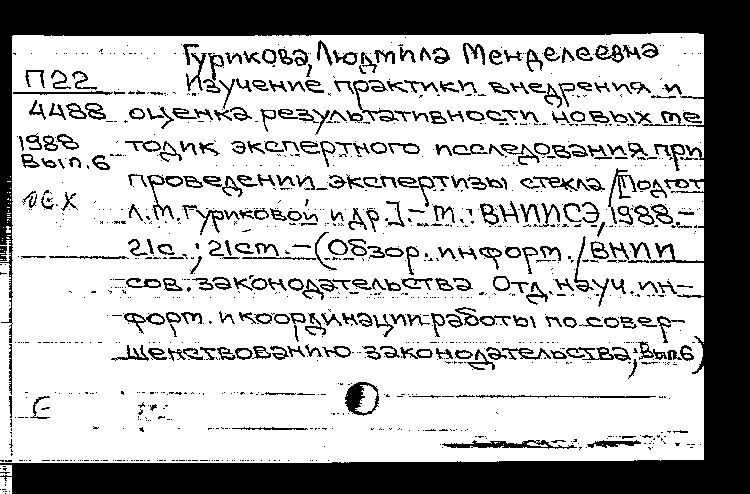 Гурикова, Людмила Менделеевна
П22 Изучение практики внедрения и
4488 оценка результативности новых ме
1988 тодик экспертного исследования при
Вып.6
проведении экспертизы стекла /[Подгот.
Л.М.Гуриковой и др.].- М.: ВНИИСЭ, 1988.-
21с.; 21ст. - (Обзор. информ. / ВНИИ
сов. законодательства. Отд. науч. ин-
форм. и координации работы по совер-
шенствованию законодательства; Вып.6)